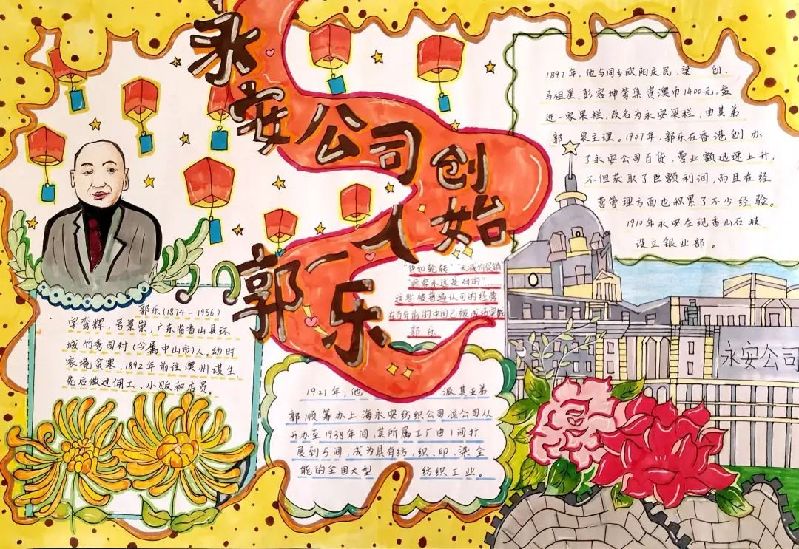 永安公司创始人
郭乐
郭乐(1874-1956)
广东省香山县环
城竹秀园村(今属中山市)人,幼时
家境贫寒,1892年前往澳州谋生
先后做过佣工、小贩和店员。
1897年,他与同乡欧阳民庆、梁 创、
马祖星、彭容坤等集资澳币1400元,盘
进一家果栏,改名为永安果栏,由其弟
郭 泉主理。1907年,郭乐在香港创办
了永安公司百货,营业额迅速上升,
不但获取了巨额利润,而且在经
营管理方面也积累了不少经验。
1910年永安在记香山石岐
设立银业部。
郭乐
1921年,他 派其五弟
郭顺筹办上海永安纺织公司,该公司从
开办至1938年间,其所属工厂由1间扩
展到5间,成为具有纺、织、印、染全
能的全国大型 纺织工业。
永安公司